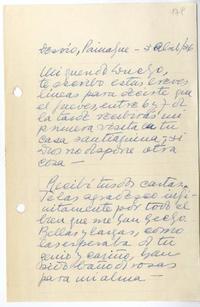 178
Osorno, Paimague - 3 Abril/56
Mi querido Luckgo,
te escribo estas breves
lineas para decirte que
el jueves, entre 6 y 7 de
la tarde recibirás mi
primera visita en tu
casa santiaguina, si
Dios no dispone otra
cosa —
Recibí tus dos cartas.
Te las agradezco infi-
nitamente por todo el
bien que me han hecho.
Bellas y largas, como
las esperaba de tu
genio y cariño, han
sido baño de rosas
para mi alma —